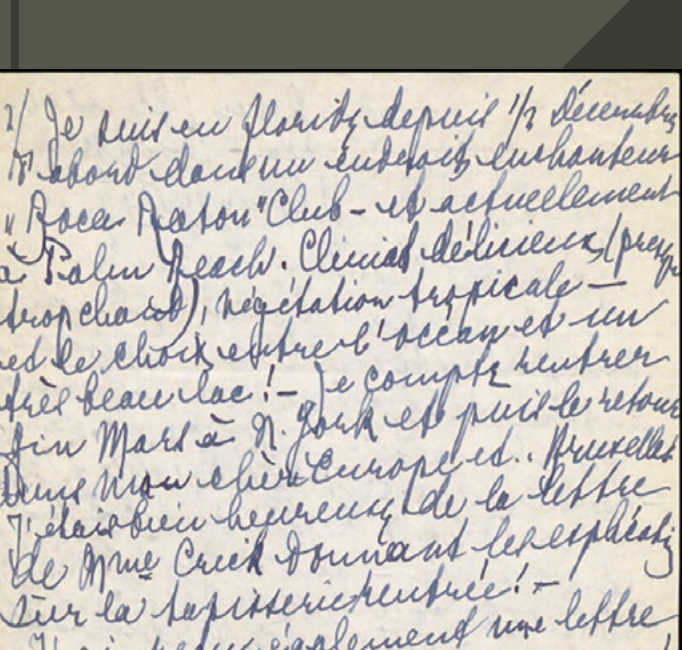 2/ Je suis en Floride depuis 1/2 Décembre
D'abord dans un endroit enchanteur
"Boca Raton" Club - et actuellement
à Palm Beach. Climat délicieux, (presq
trop chaud), végétation tropicale —
et le choix entre l'océan et un
très beau lac! - Je compte rentrer
fin Mars à N. York et puis le retour
dans mon chère Europe et.. Bruxelles
J'étais bien heureux de la lettre
de Mme Crick donnant les explicatio
sur la tapisserie rentrée! -
J'ai reçu également une lettre